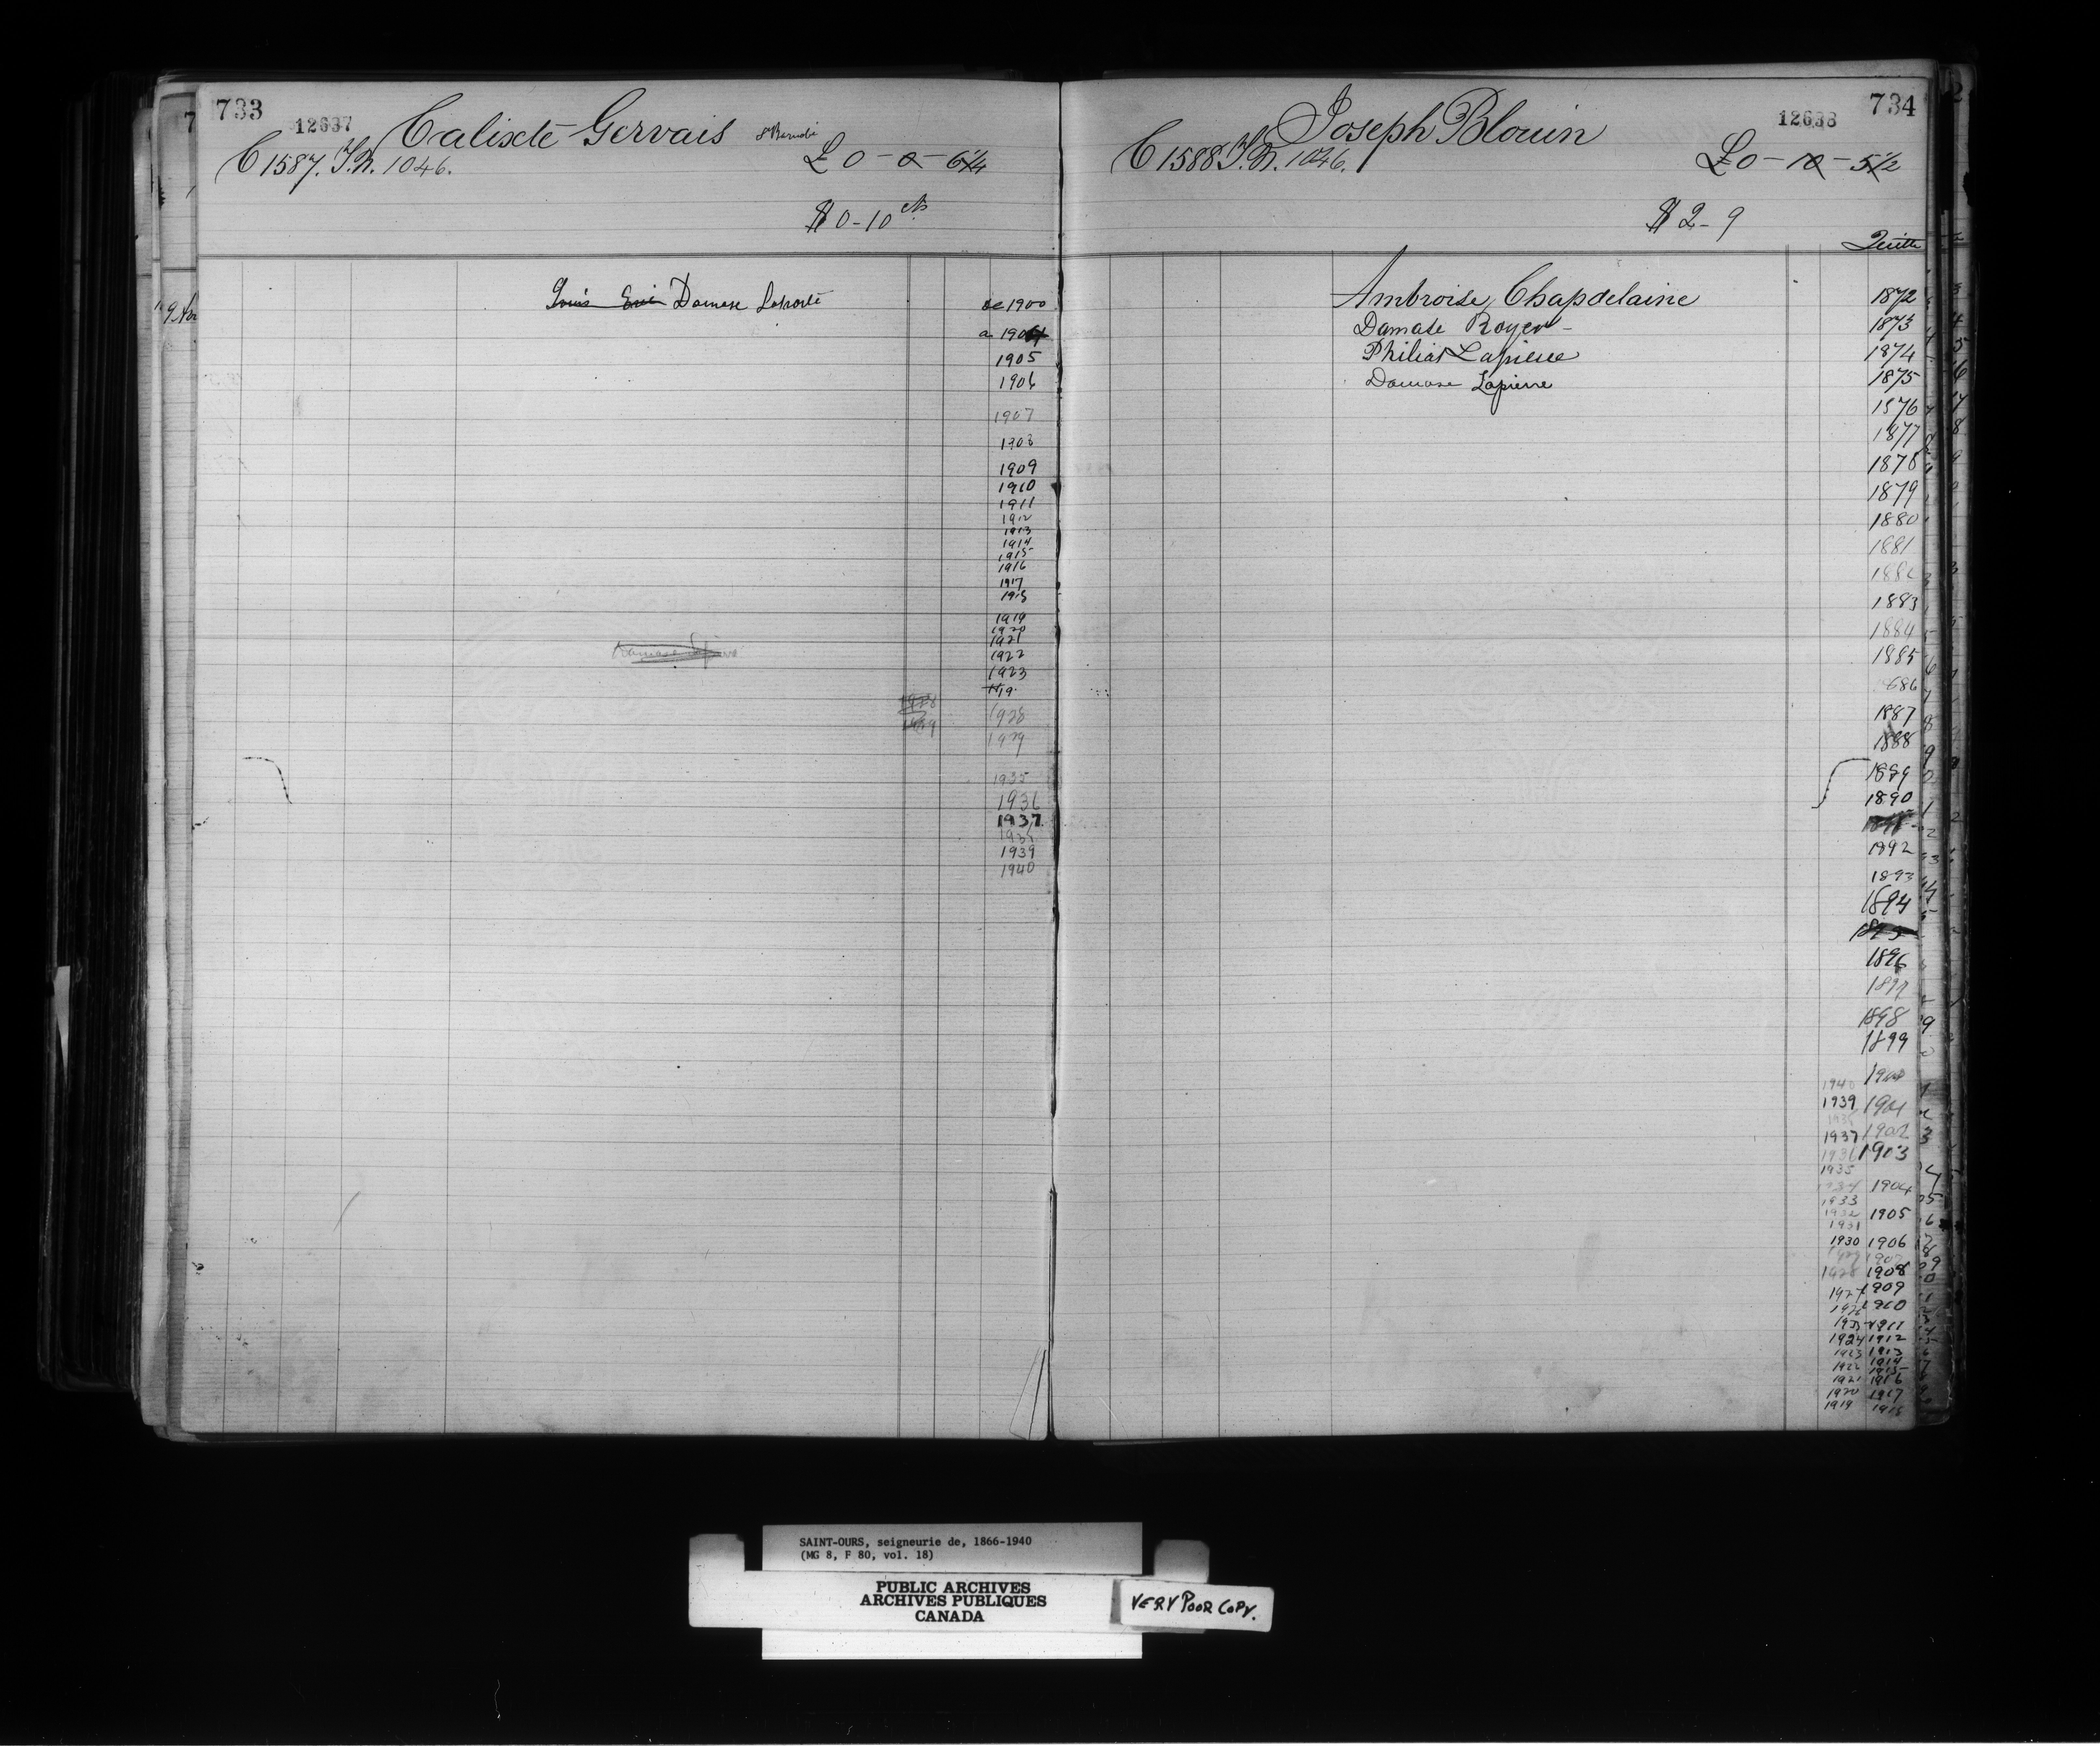 733
12637
Calixte Gervais St Barnabé
C 1587. T.N. 1046.
£ 0 - 0 - 6 1/4
$ 0 - 10 cts
Damase Laporte
de 1900
a 1904
1905
1906
1907
1908
1909
1910
1911
1912
1913
1914
1915
1916
1917
1918
1919
1920
1921
1922
1923
1928
1928
1929
1929
1935
1936
1937
1938
1939
1940
Damase
734
12638
Joseph Blouin
C 1588 T.N. 1046.
£ 0 - 10 - 5 1/2
$ 2 - 9
Quitte
Ambroise Chapdelaine 1872
Damase Royer - 1873
Philias Lapierre 1874
Damase Lapierre 1875
1876
1877
1878
1879
1880
1881
1882
1883
1884
1885
1886
1887
1888
1889
1890
1892
1893
1894
1895
1896
1897
1898
1899
1940 1900
1939 1901
1938
1937 1902
1936 1903
1935
1934 1904
1933
1932 1905
1931
1930 1906
1929 1907
1928 1908
1927 1909
1926 1910
1925 1911
1924 1912
1923 1913
1922 1914
1915
1921 1916
1920 1917
1919 1918
SAINT-OURS, seigneurie de, 1866-1940
(MG 8, F 80, vol. 18)
PUBLIC ARCHIVES
ARCHIVES PUBLIQUES
CANADA
VERY POOR COPY.